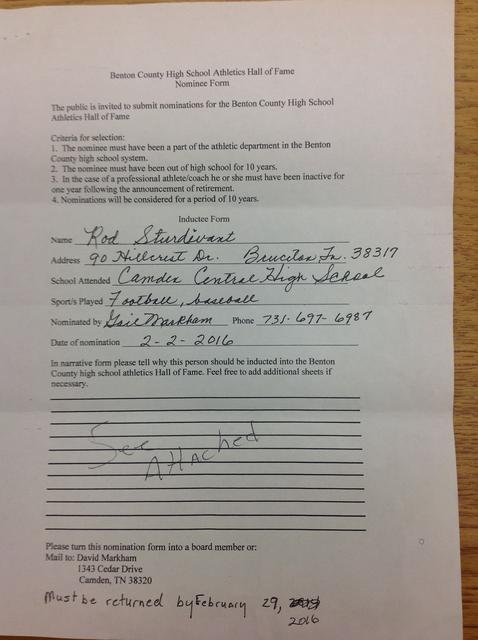 Benton County High School Athletics Hall of Fame
Nominee Form
The public is invited to submit nominations for the Benton County High School
Athletics Hall of Fame
Criteria for selection:
1. The nominee must have been a part of the athletic department in the Benton
County high school system.
2. The nominee must have been out of high school for 10 years.
3. In the case of a professional athlete/coach he or she must have been inactive for
one year following the announcement of retirement.
4. Nominations will be considered for a period of 10 years.
Inductee Form
Name Rod Sturdivant
Address 90 Hillcrest Dr. Bruceton Tn. 38317
School Attended Camden Central High School
Sport/s Played Football, baseball
Nominated by Gail Markham Phone 731-697-6987
Date of nomination 2-2-2016
In narrative form please tell why this person should be inducted into the Benton
County high school athletics Hall of Fame. Feel free to add additional sheets if
necessary.
See
Attached
Please turn this nomination form into a board member or:
Mail to: David Markham
1343 Cedar Drive
Camden, TN 38320
Must be returned by February 29,
2016